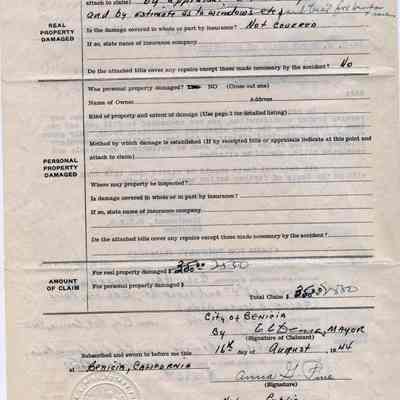 attach to claim)
and by estimate as to windows etc,
REAL PROPERTY DAMAGED
Is the damage covered in whole or part by insurance? Not covered
If so, state name of insurance company
Do the attached bills cover any repairs except those made necessary by the accident? No
Was personal property damaged? NO (Cross out one)
Name of Owner Address
Kind of property and extent of damage (Use page 3 for detailed listing)
Method by which damage is established (If by receipted bills or appraisals indicate at this point and
attach to claim)
PERSONAL PROPERTY DAMAGED
Where may property be inspected?
Is damage covered in whole or in part by insurance?
If so, state name of insurance company
Do the attached bills cover any repairs except those made necessary by the accident?
AMOUNT OF CLAIM
For real property damaged $
For personal property damaged $
Total Claim $
City of Benicia
By MAYOR
(Signature of Claimant)
Subscribed and sworn to before me this 16th day of August, 1944
at Benicia, California
Anna
(Signature)